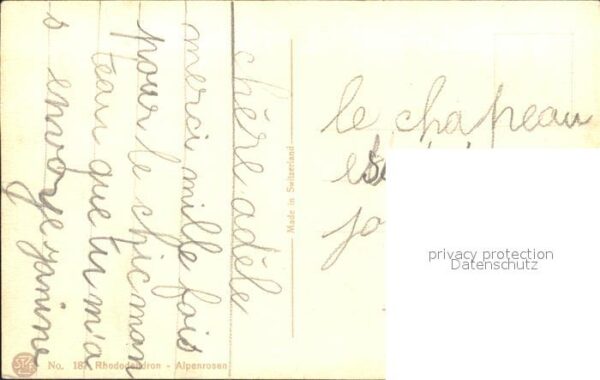 chère adèle
merci mille fois
pour le chic man
teau que tu m'a
s envoye janine
le chapeau
Made in Switzerland
No. 18 Rhododendron - Alpenrosen
privacy protection
Datenschutz